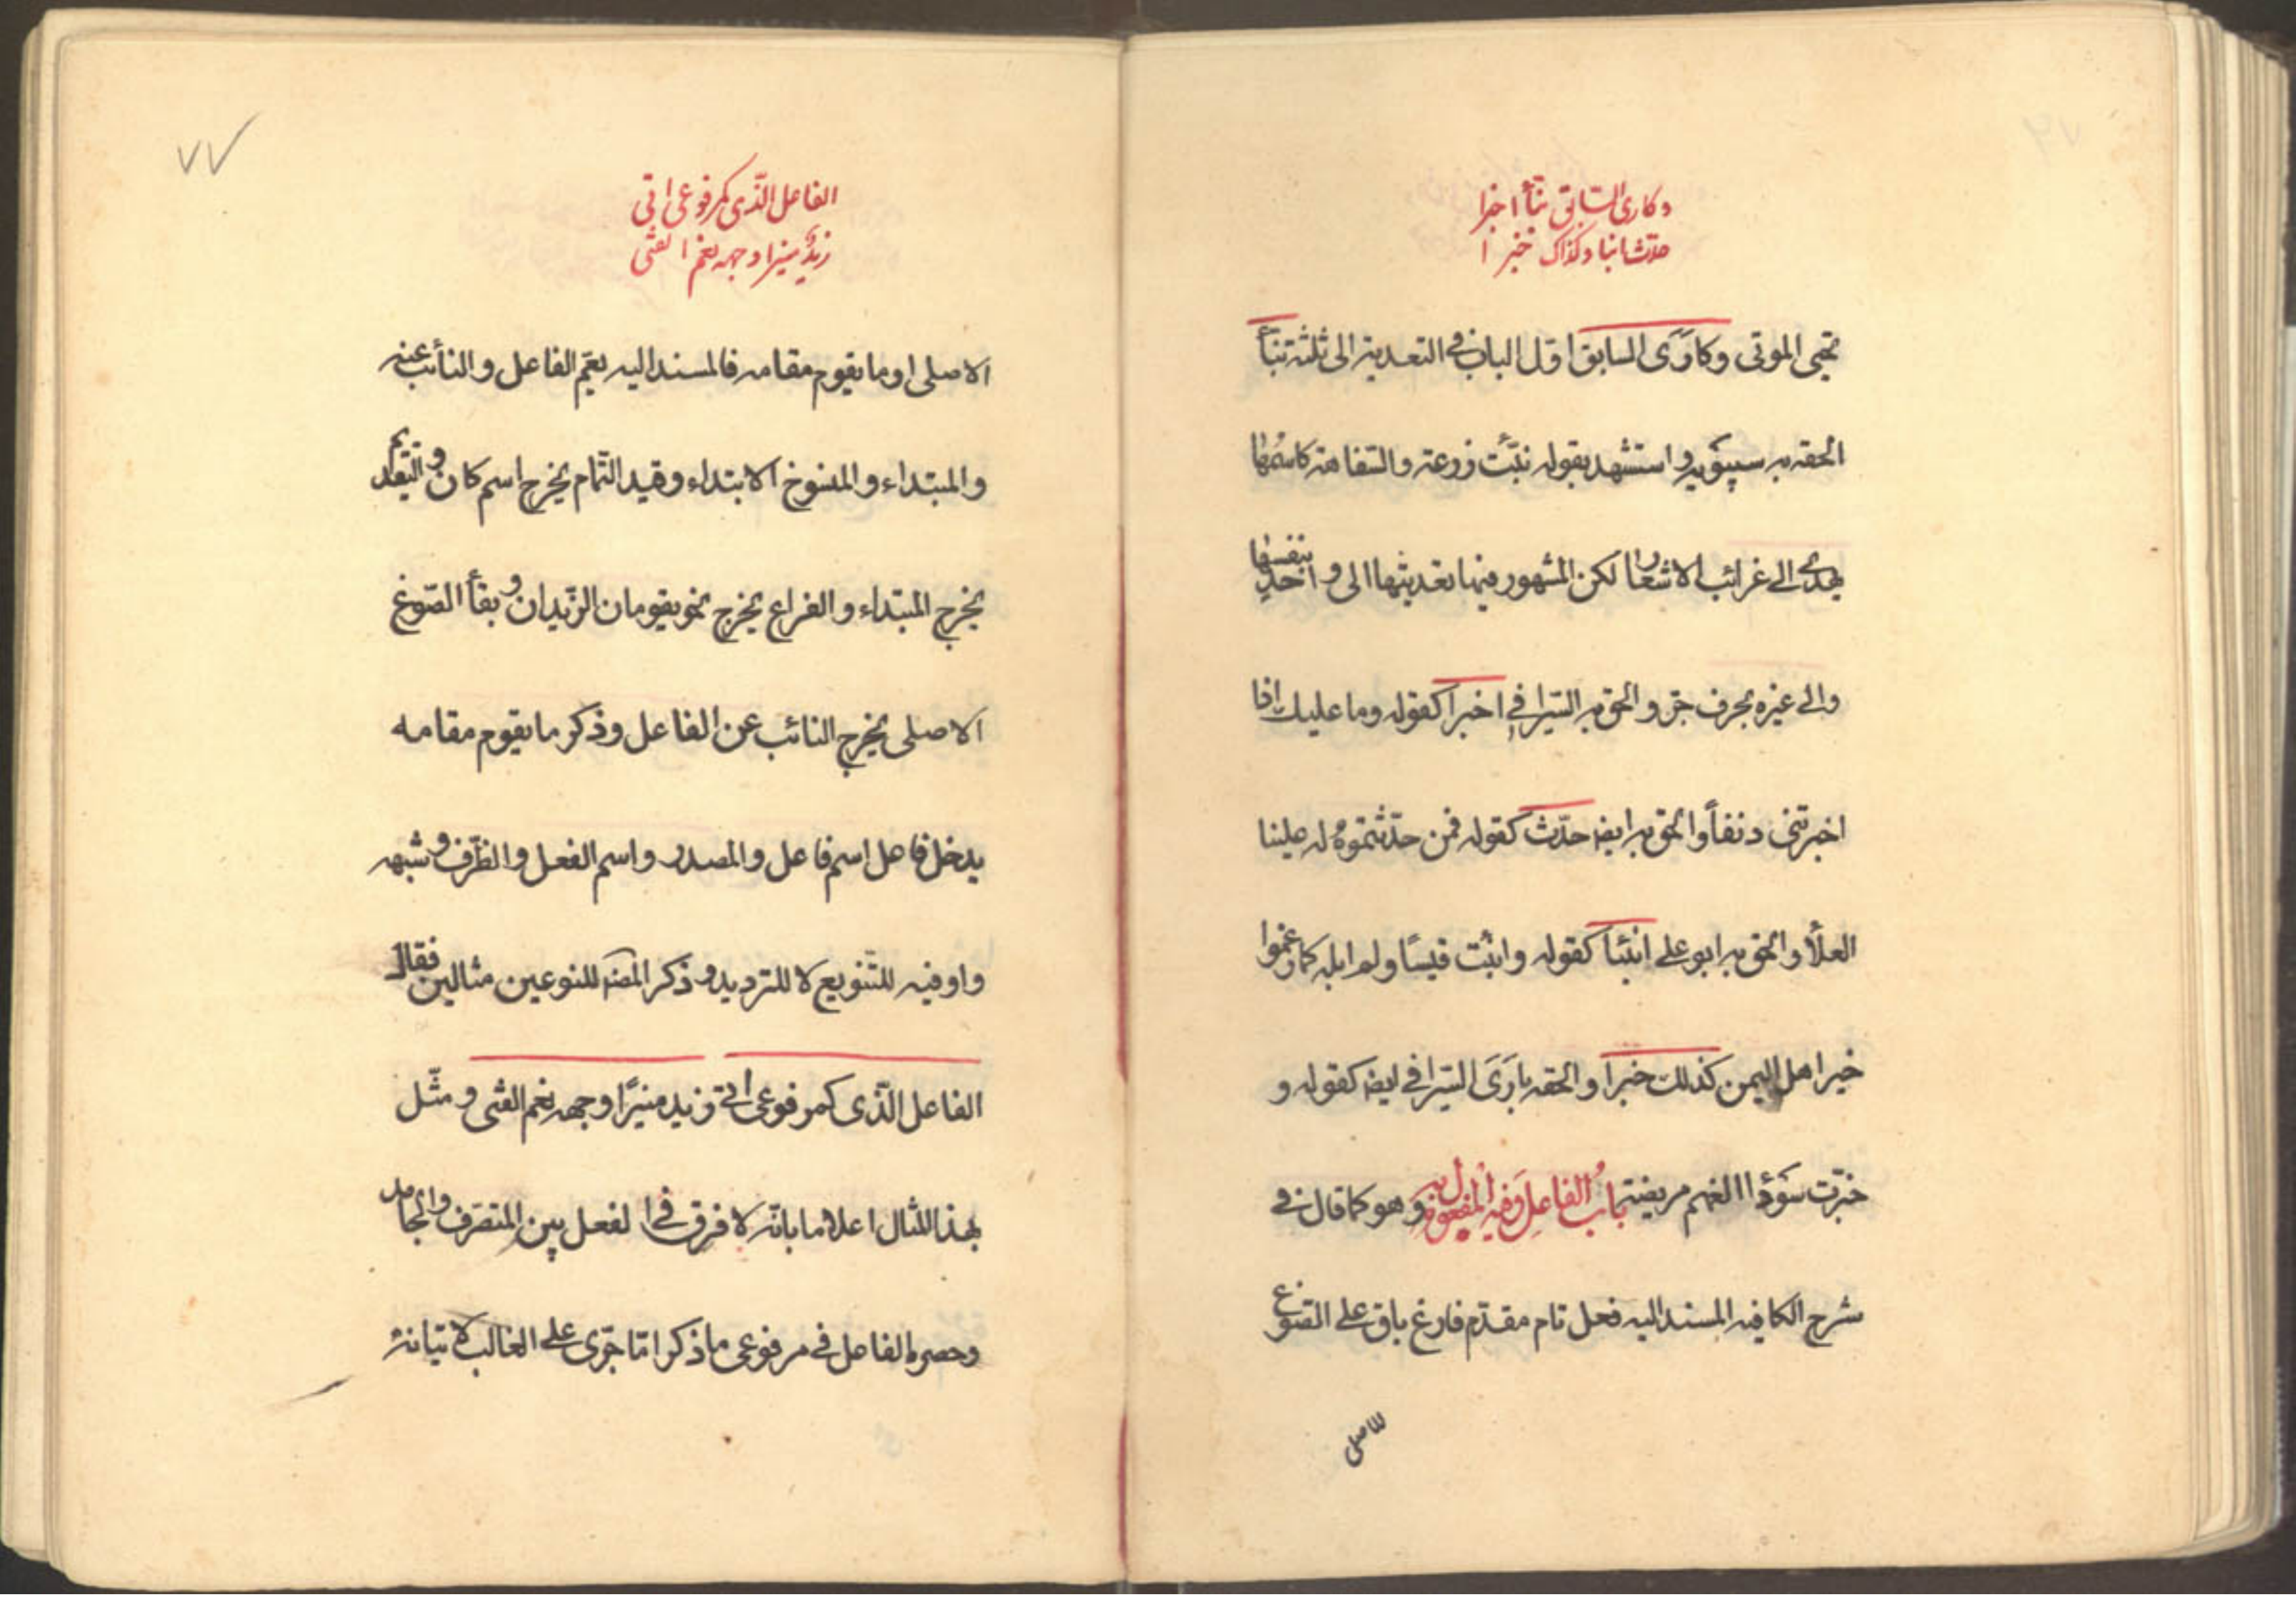 وكارى السّابق نبّأ اخبرا
حدّث انبا وكذاك خبّرا
تحيى الموتى وكارَى السابق اوّل الباب فى التعدية الى ثلثة نبّأ
الحقه به سيبويه و استشهد بقوله نبّئت زرعة والسّفاهة كاسمها
يهدى الى غرائب الاشعار لكن المشهور فيها تعديتها الى واحد بنفسها
والى غيره بحرف جرّ والحق به السّيرافى اخبرا كقوله وما عليك اذا
اخبرتنى دنفاً والحق به ايضا حدّث كقوله فمن حدّثتموه له علينا
العلأ والحق به ابو على انبئا كقوله وانبئت قيسًا ولم ابله كما زعموا
خير اهل اليمن كذلك خبرا والحقه بارَى السّيرافى ايضا كقوله و
خبّرت سَودٰا الغمم مريضة باب الفاعل وفيه المفعول به وهو كما قال فى
شرح الكافيه المسند اليه فعل تام مقدّم فارغ باق على الصّوغ
الاصلى
٧٧
الفاعل الّذى كمرفوعى اتى
زيدٌ منيرا وجهه نعم الفتى
الاصلى او ما يقوم مقامه فالمسند اليه يعمّ الفاعل والنائب عنه
والمبتداء والمنسوخ الابتداء وقيد التّمام يخرج اسم كان و التقديم
يخرج المبتداء والفراغ يخرج نحو يقومان الزّيدان و بقأ الصّوغ
الاصلى يخرج النائب عن الفاعل وذكر ما يقوم مقامه
يدخل فاعل اسم فاعل والمصدر واسم الفعل والظّرف و شبهه
واو فيه للتّنويع لا للترديد و ذكر المص للنوعين مثالين فقال
الفاعل الّذى كمرفوعى اتى زيد منيرًا وجهه نعم الفتى و مثّل
بهذا المثال اعلاما بانّه لا فرق فى الفعل بين المتصرّف والجامد
وحصره الفاعل فى مرفوعى ما ذكر امّا جرى على الغالب لاتيانه